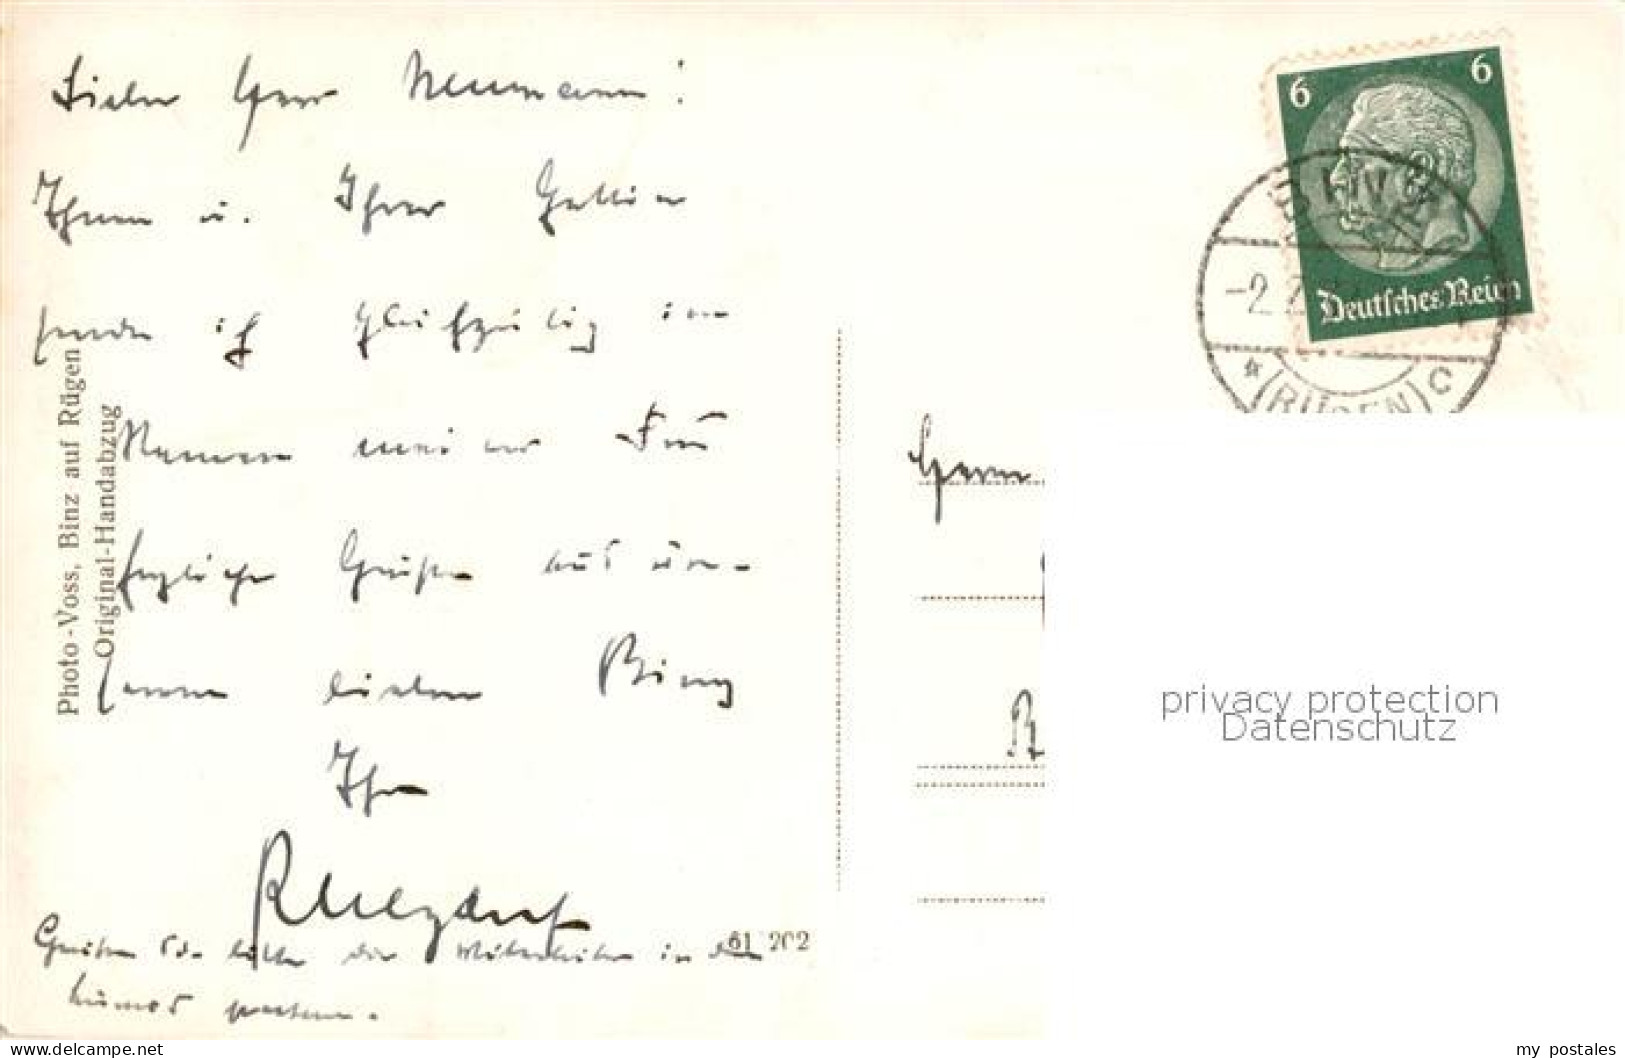 Lieber Herr Neumann!
Ihnen u. Ihrer Gattin
sende ich gleichzeitig im
Namen meiner Frau
herzliche Grüße aus un-
serem lieben Binz
Ihr
Grüßen Sie bitte die Mitarbeiter in den
Photo-Voss, Binz auf Rügen
Original-Handabzug
61 202
6 6
Deutsches Reich
BINZ
-2.
(RÜGEN) C
Herrn
privacy protection
Datenschutz
my_postales
www.delcampe.net